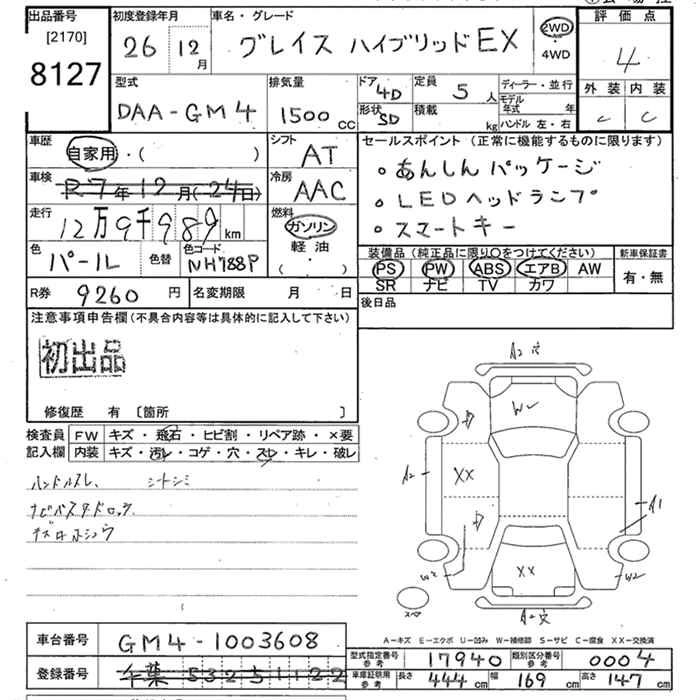 出品番号
[2170]
8127
初度登録年月
26 12月
車名・グレード
グレイス ハイブリッド EX
2WD
・
4WD
評価点
4
外装 内装
C C
型式
DAA-GM4
排気量
1500 cc
ドア
4D
形状
SD
定員
5 人
積載
kg
ディーラー・並行
モデル年式 年
ハンドル 左・右
車歴
自家用・( )
シフト
AT
車検
R7年12月(24日)
冷房
AAC
走行
12万9千989 km
燃料
ガソリン
軽油
( ・ )
色
パール
色替
色コード
NH788P
セールスポイント(正常に機能するものに限ります)
。あんしんパッケージ
。LEDヘッドランプ
。スマートキー
装備品(純正品に限り○をつけてください)
PS PW ABS エアB AW
SR ナビ TV カワ
新車保証書
有・無
R券 9260 円
名変期限 月 日
後日品
注意事項申告欄(不具合内容等は具体的に記入して下さい)
初出品
修復歴 有 〔箇所 〕
検査員
記入欄
FW キズ・飛石・ヒビ割・リペア跡・×要
内装 キズ・汚レ・コゲ・穴・スレ・キレ・破レ
ハンドルスレ、 シートシミ
ナビパスワードロック
A2
W
A2
XX
A1
W2
XX
W2
スペア
A2
A-キズ E-エクボ U-凹み W-補修跡 S-サビ C-腐食 XX-交換済
車台番号 GM4-1003608
登録番号 千葉 532 5 1122
型式指定番号
参考
17940
類別区分番号
参考
0004
車庫証明用
参考
長さ 444 cm 幅 169 cm 高さ 147 cm